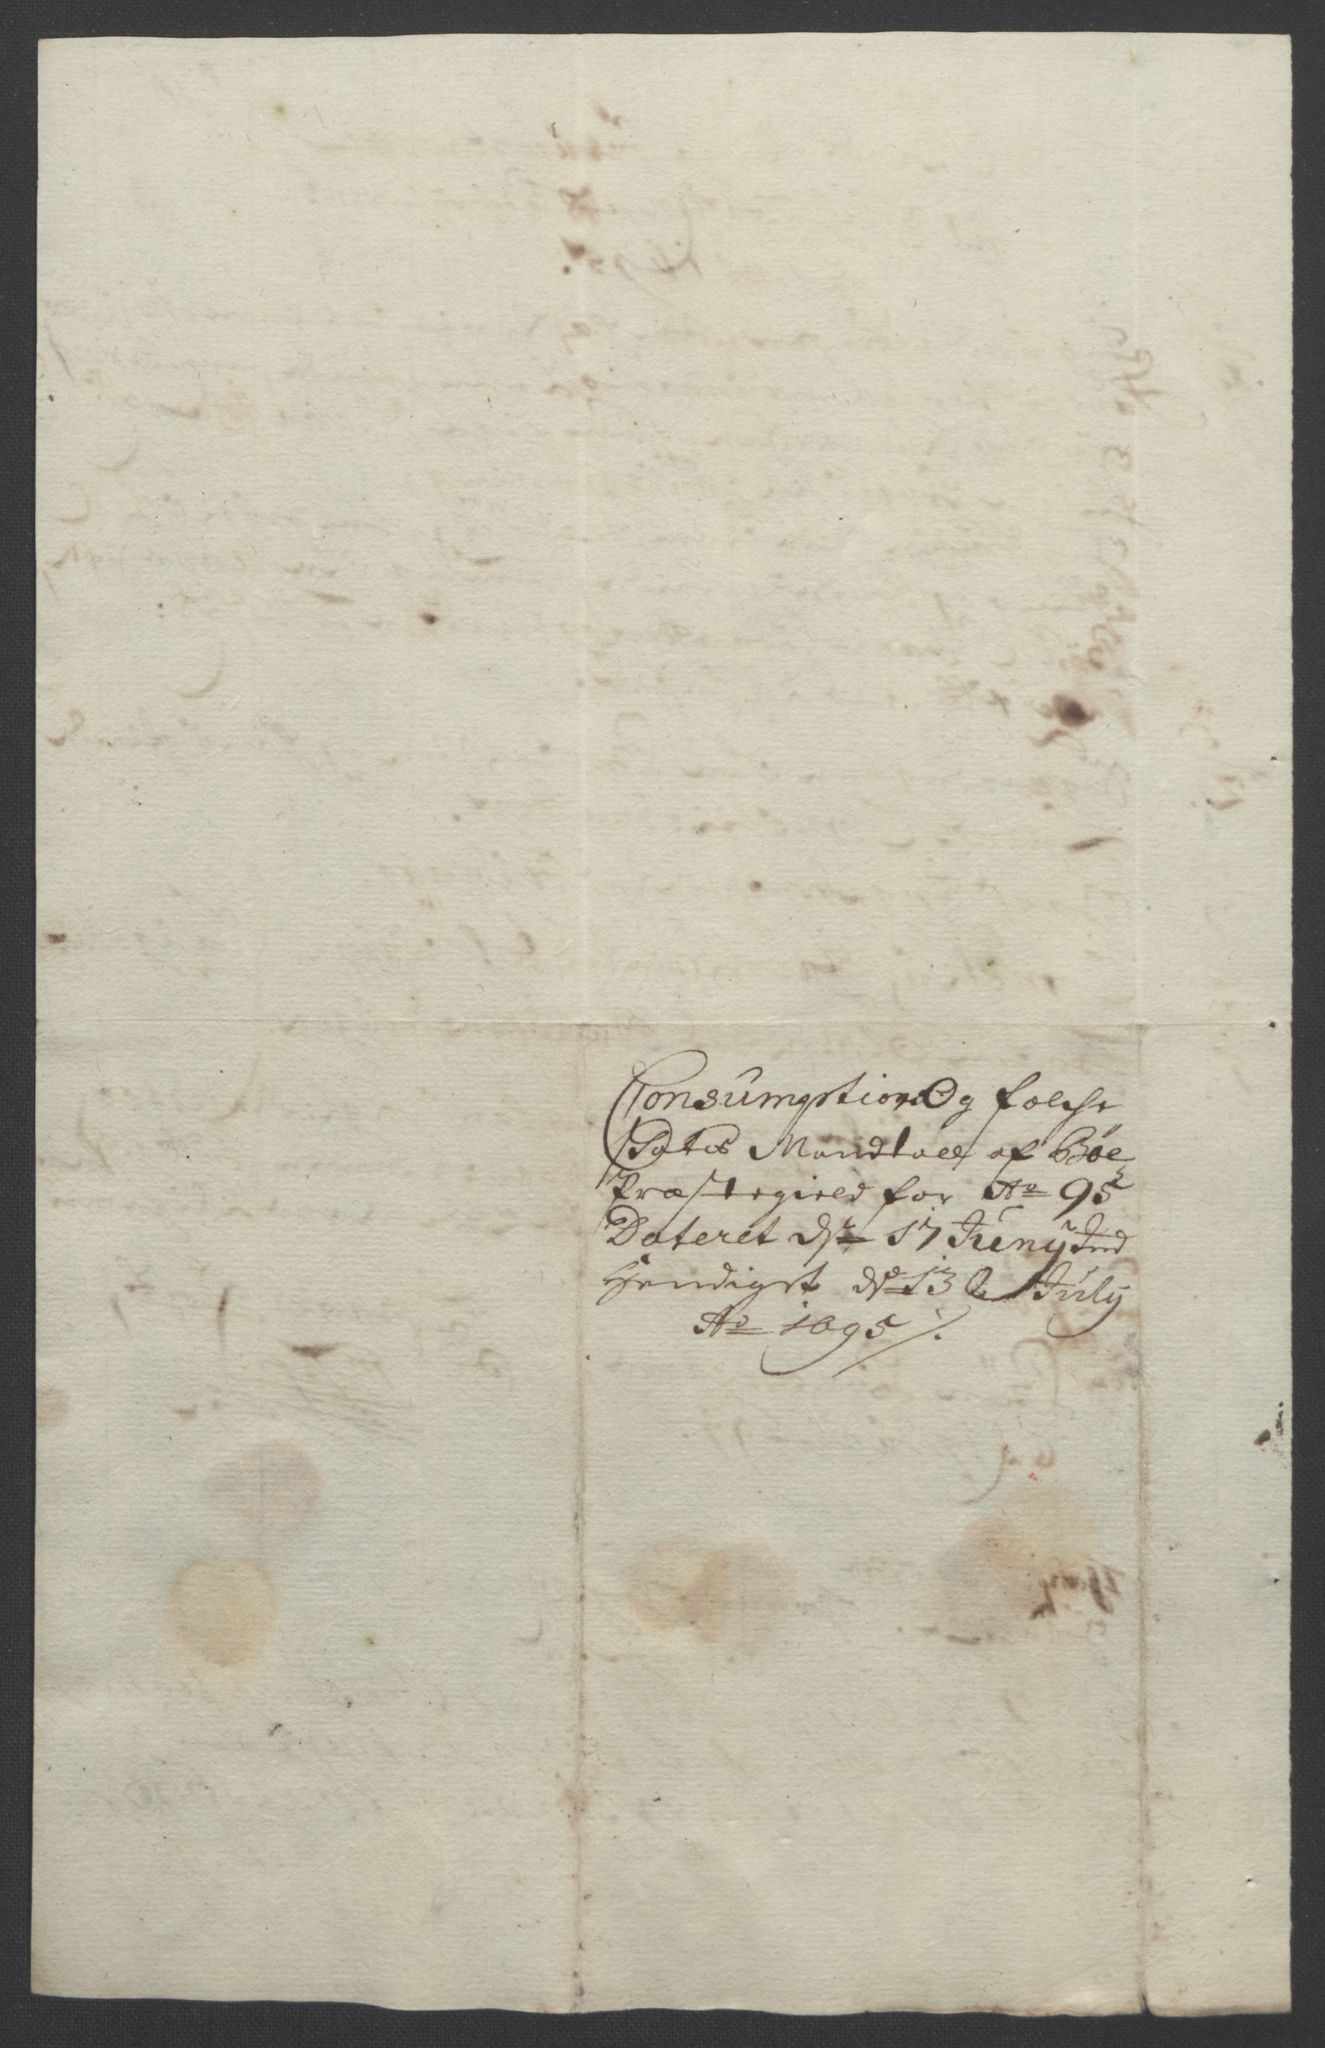 Consumption Og folche
Skatts Mandtall af Böe
Præstegield for Ao 95
Dateret d. 17 Juny Ind
Hendiget d. 13 July
Ao 1695 /.